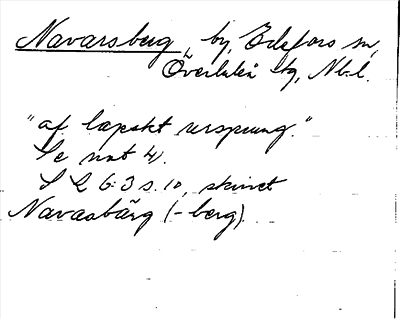 Navarsberg, by, Edefors sn,
Överluleå tg, Nb.l.
"af lapskt ursprung."
Se not 4.
S L 6:3 s. 10, skrivet
Navasbärg (-berg).